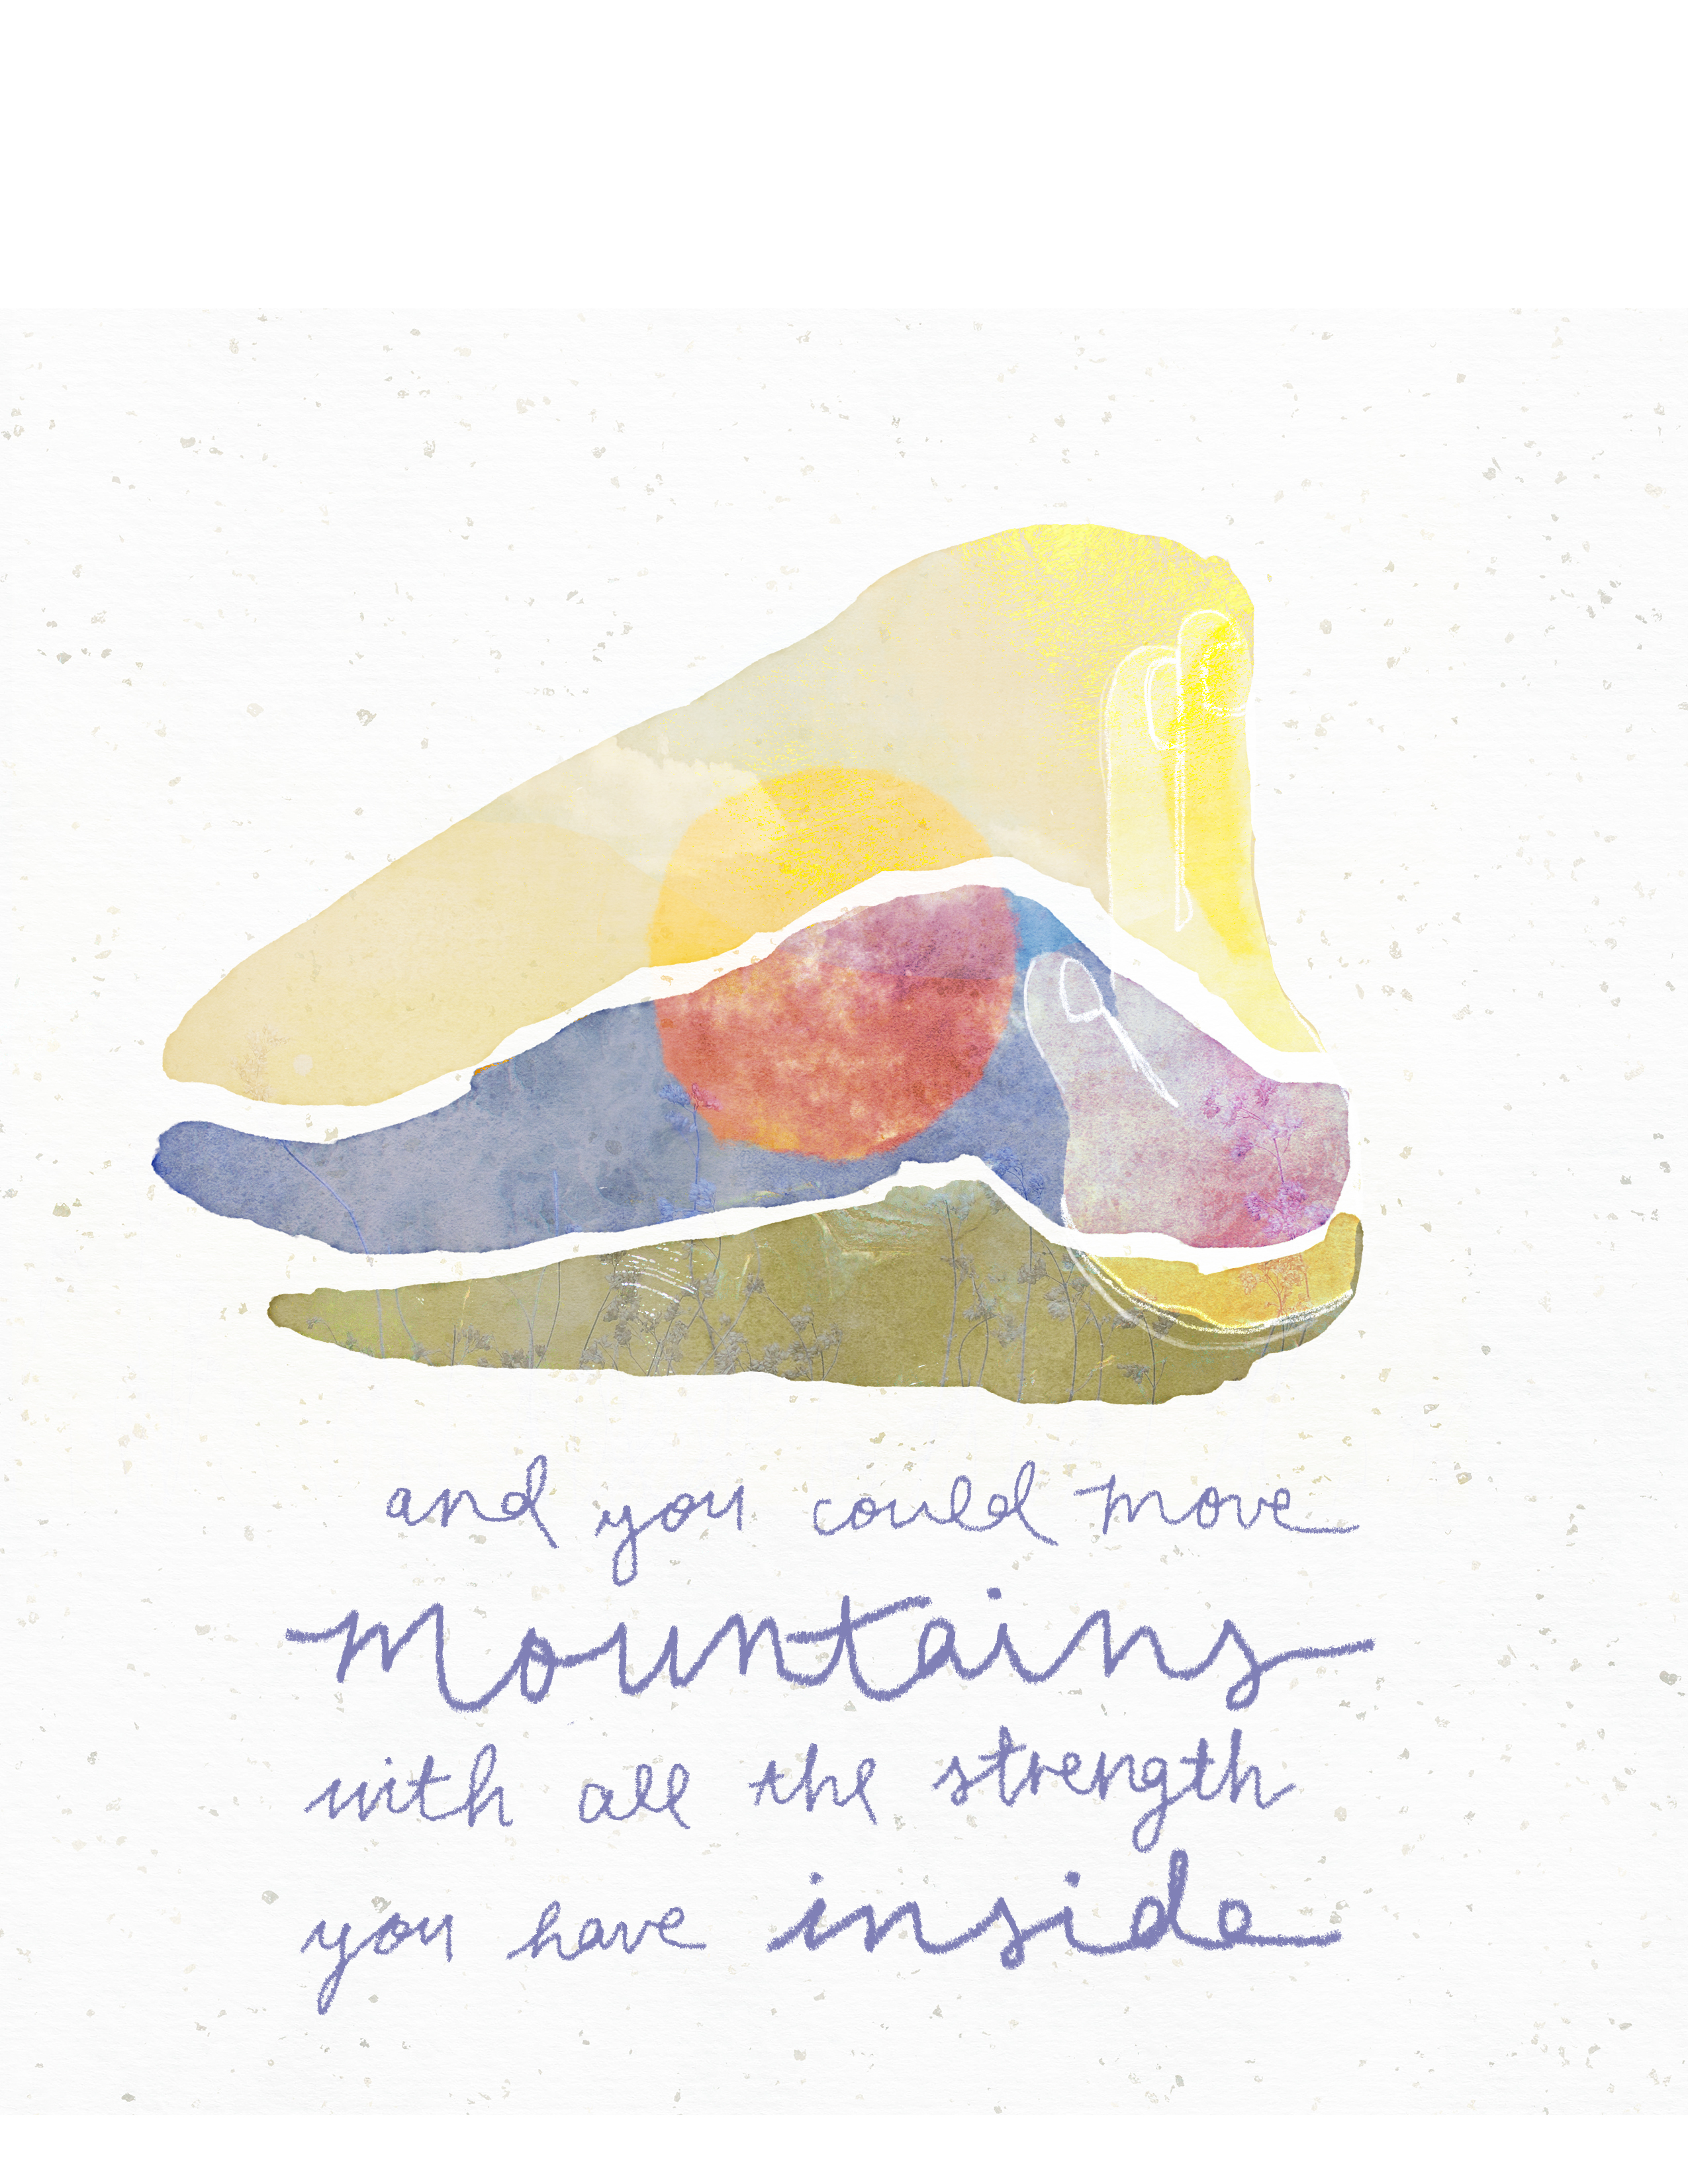 and you could move
mountains
with all the strength
you have inside